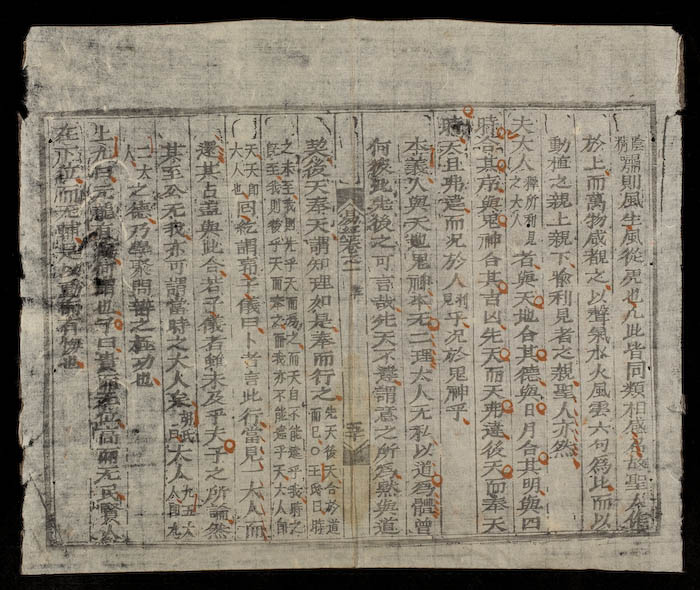 隂
物
嘯則風生風從虎也凡此皆同類相感爲故聖人作
於上而萬物咸覩之以聲氣水火風雲六句爲此而以
動植之親上親下喩利見者之親聖人亦然
夫大人
釋所利見
之大人
者與天地合其德與日月合其明與四
時合其序與鬼神合其吉凶先天而天弗違後天而奉天
時天且弗違而況於人
利
見
乎況於鬼神乎
本義人與天地鬼神本无二理大人无私以道爲體曽
何彼此先後之可言哉先天不違謂意之所爲黙與道
契後天奉天謂知理如是奉而行之
先天後天合於道
而已○王氏曰時
之未至我則先乎天而爲之而天自不能違乎我時之
旣至我則後乎天而奉之而我亦不能違乎天大人卽
天天卽
大人也
回紇謂郭子儀曰卜者言此行當見一大人而
還其占盖與此合若子儀者雖未及乎夫子之所論然
其至公无我亦可謂當時之大人矣
胡氏
曰
大人
九五大
人卽九
二大
人
之德乃學聚問辯之極功也
上九曰亢龍有悔何謂也子曰貴而无位高而无民賢人
在下位而无輔是以動而有悔也